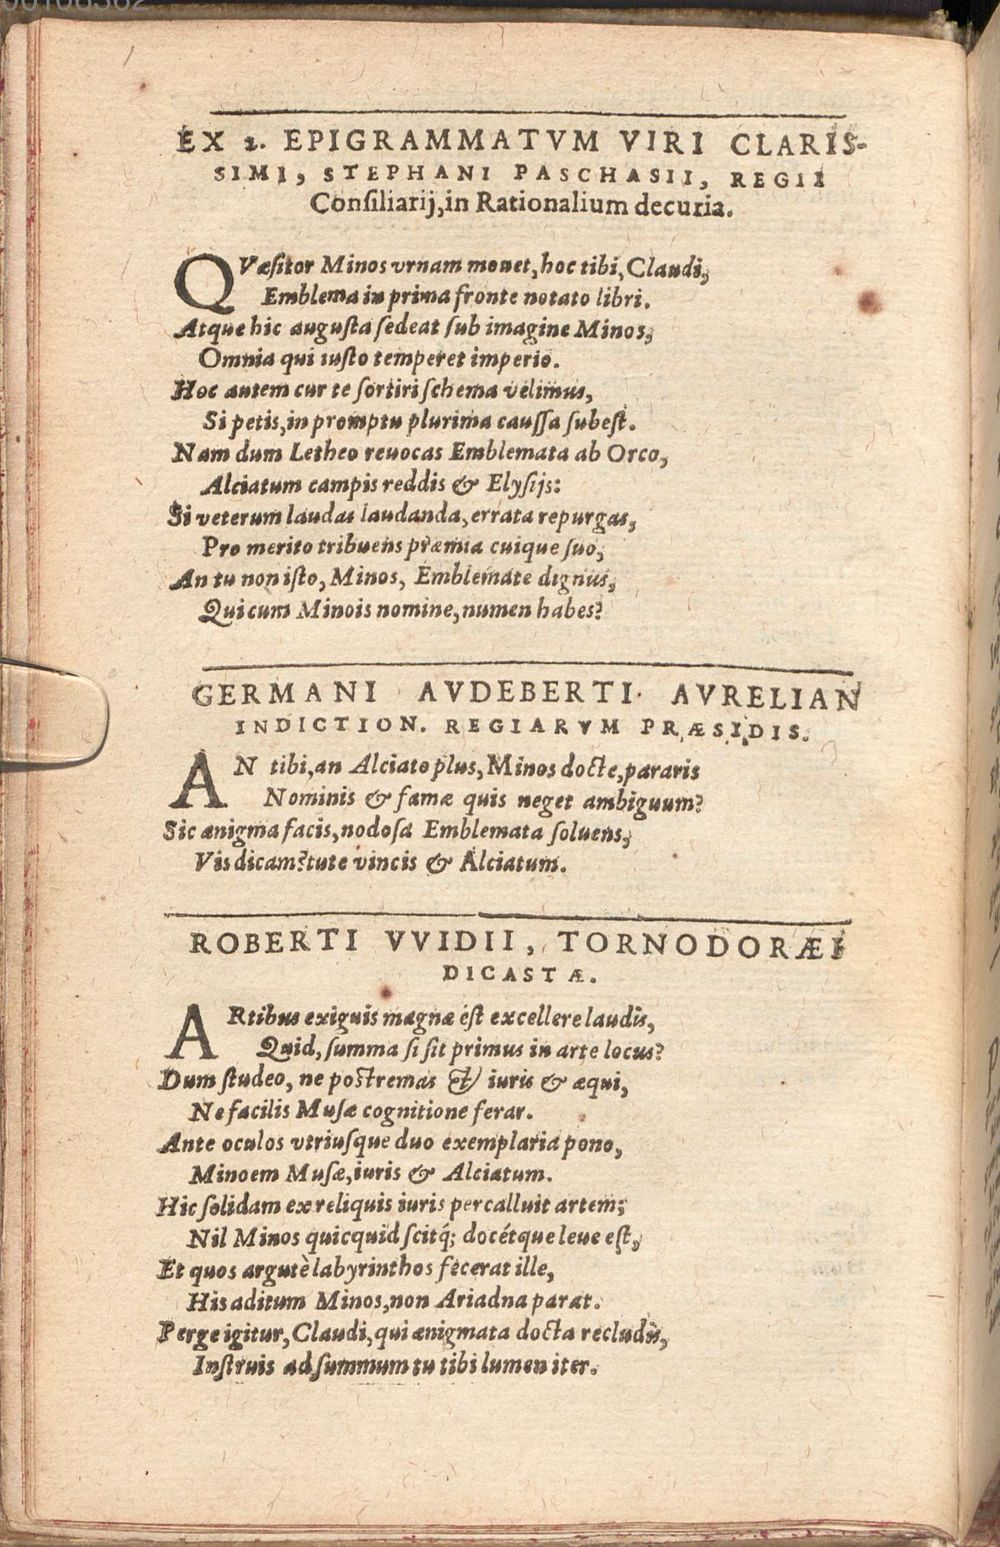 EX 2. EPIGRAMMATVM VIRI CLARIS-
SIMI, STEPHANI PASCHASII, REGII
Conſiliarij, in Rationalium decuria.
QVæſitor Minos vrnam mouet, hoc tibi, Claudi,
Emblema in prima fronte notato libri.
Atque hic auguſta ſedeat ſub imagine Minos,
Omnia qui iuſto temperet imperio.
Hoc autem cur te ſortiri ſchema velimus,
Si petis, in promptu plurima cauſſa ſubeſt.
Nam dum Letheo reuocas Emblemata ab Orco,
Alciatum campis reddis & Elyſijs:
Si veterum laudas laudanda, errata repurgas,
Pro merito tribuens præmia cuique ſuo,
An tu non iſto, Minos, Emblemate dignus,
Qui cum Minois nomine, numen habes?
GERMANI AVDEBERTI AVRELIAN
INDICTION. REGIARVM PRÆSIDIS.
AN tibi, an Alciato plus, Minos docte, pararis
Nominis & famæ quis neget ambiguum?
Sic ænigma facis, nodoſa Emblemata ſoluens,
Vis dicam? tute vincis & Alciatum.
ROBERTI VVIDII, TORNODORÆI
DICASTÆ.
ARtibus exiguis magnæ eſt excellere laudis,
Quid, ſumma ſi ſit primus in arte locus?
Dum ſtudeo, ne poſtremas & iuris & æqui,
Ne facilis Muſæ cognitione ferar.
Ante oculos vtriuſque duo exemplaria pono,
Minoem Muſæ, iuris & Alciatum.
Hic ſolidam ex reliquis iuris percalluit artem;
Nil Minos quicquid ſcitq́; docétque leue eſt,
Et quos argutè labyrinthos fecerat ille,
His aditum Minos, non Ariadna parat.
Perge igitur, Claudi, qui ænigmata docta recludis,
Inſtruis ad ſummum tu tibi lumen iter.